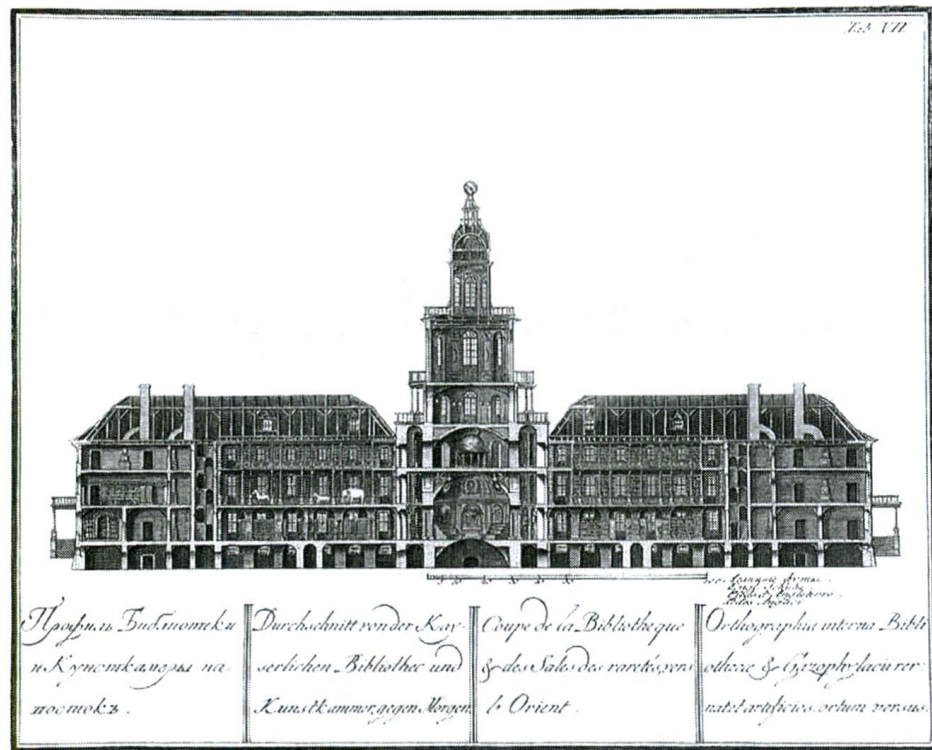 Tab. VII.
Профиль Библиотеки
и Кунсткамеры на
востокъ.
Durchschnitt von der Kay-
serlichen Bibliothec und
Kunstkammer, gegen Morgen.
Coupe de la Bibliotheque
& des Sales des raretés, vers
l'Orient.
Orthographia interna Bibli
othecæ & Gazophylacii rer:
nat. et artificios. ortum versus.